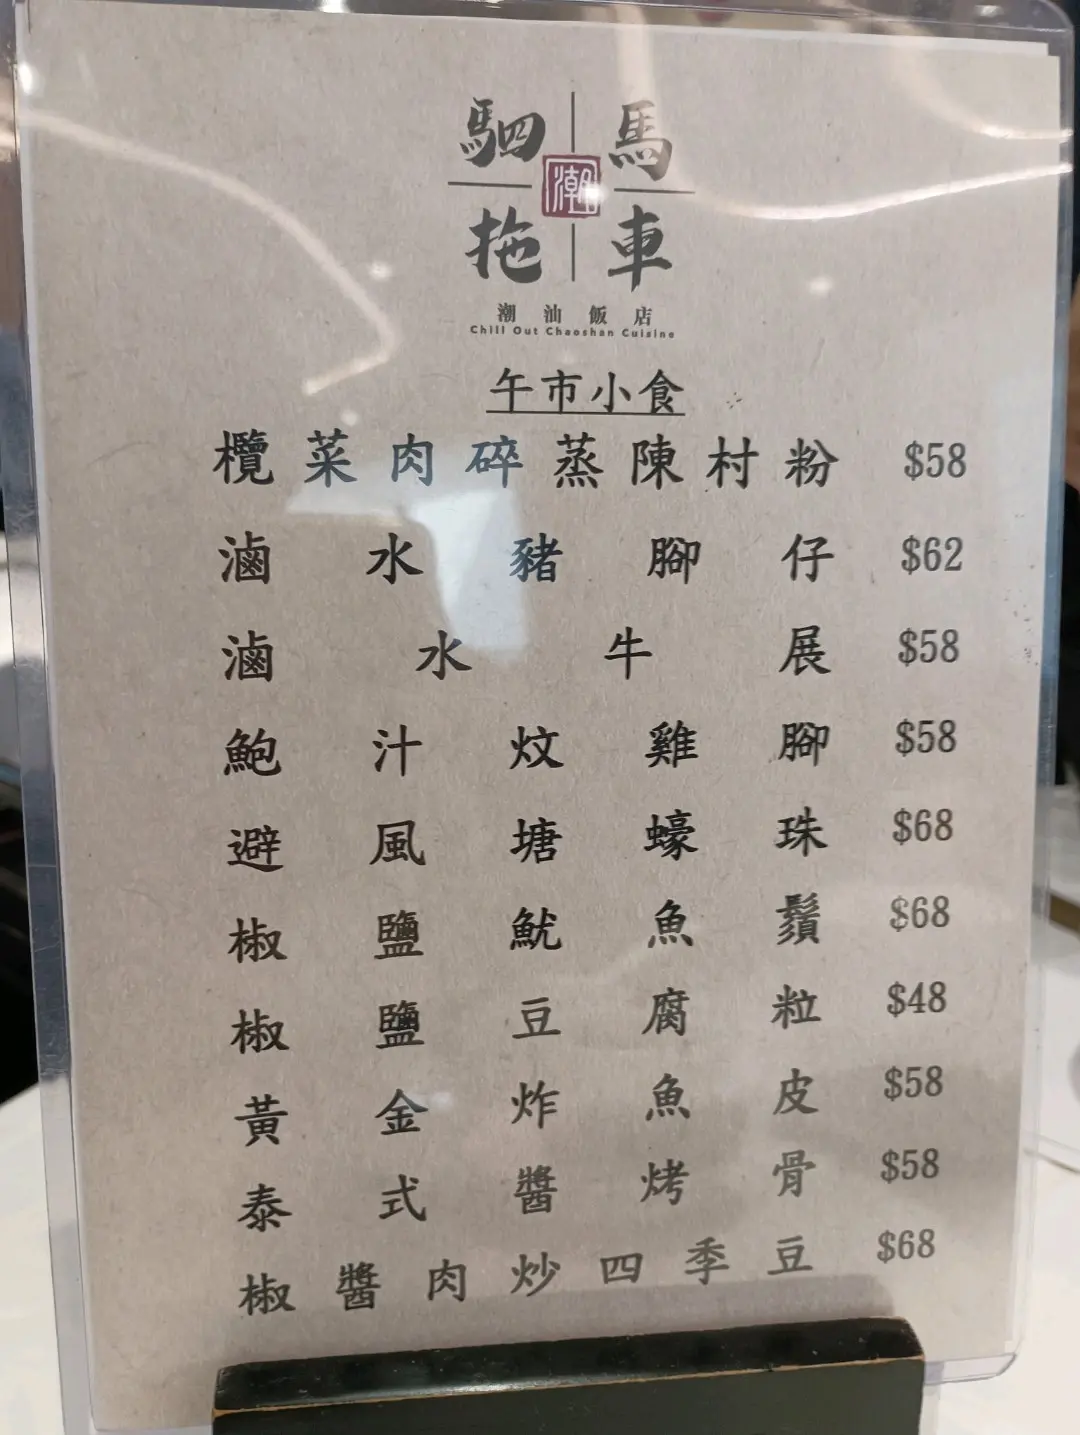 駟馬
潮
拖車
潮汕飯店
Chill Out Chaoshan Cuisine
午市小食
欖菜肉碎蒸陳村粉 $58
滷水豬腳仔 $62
滷水牛展 $58
鮑汁炆雞腳 $58
避風塘蠔珠 $68
椒鹽魷魚鬚 $68
椒鹽豆腐粒 $48
黃金炸魚皮 $58
泰式醬烤骨 $58
椒醬肉炒四季豆 $68